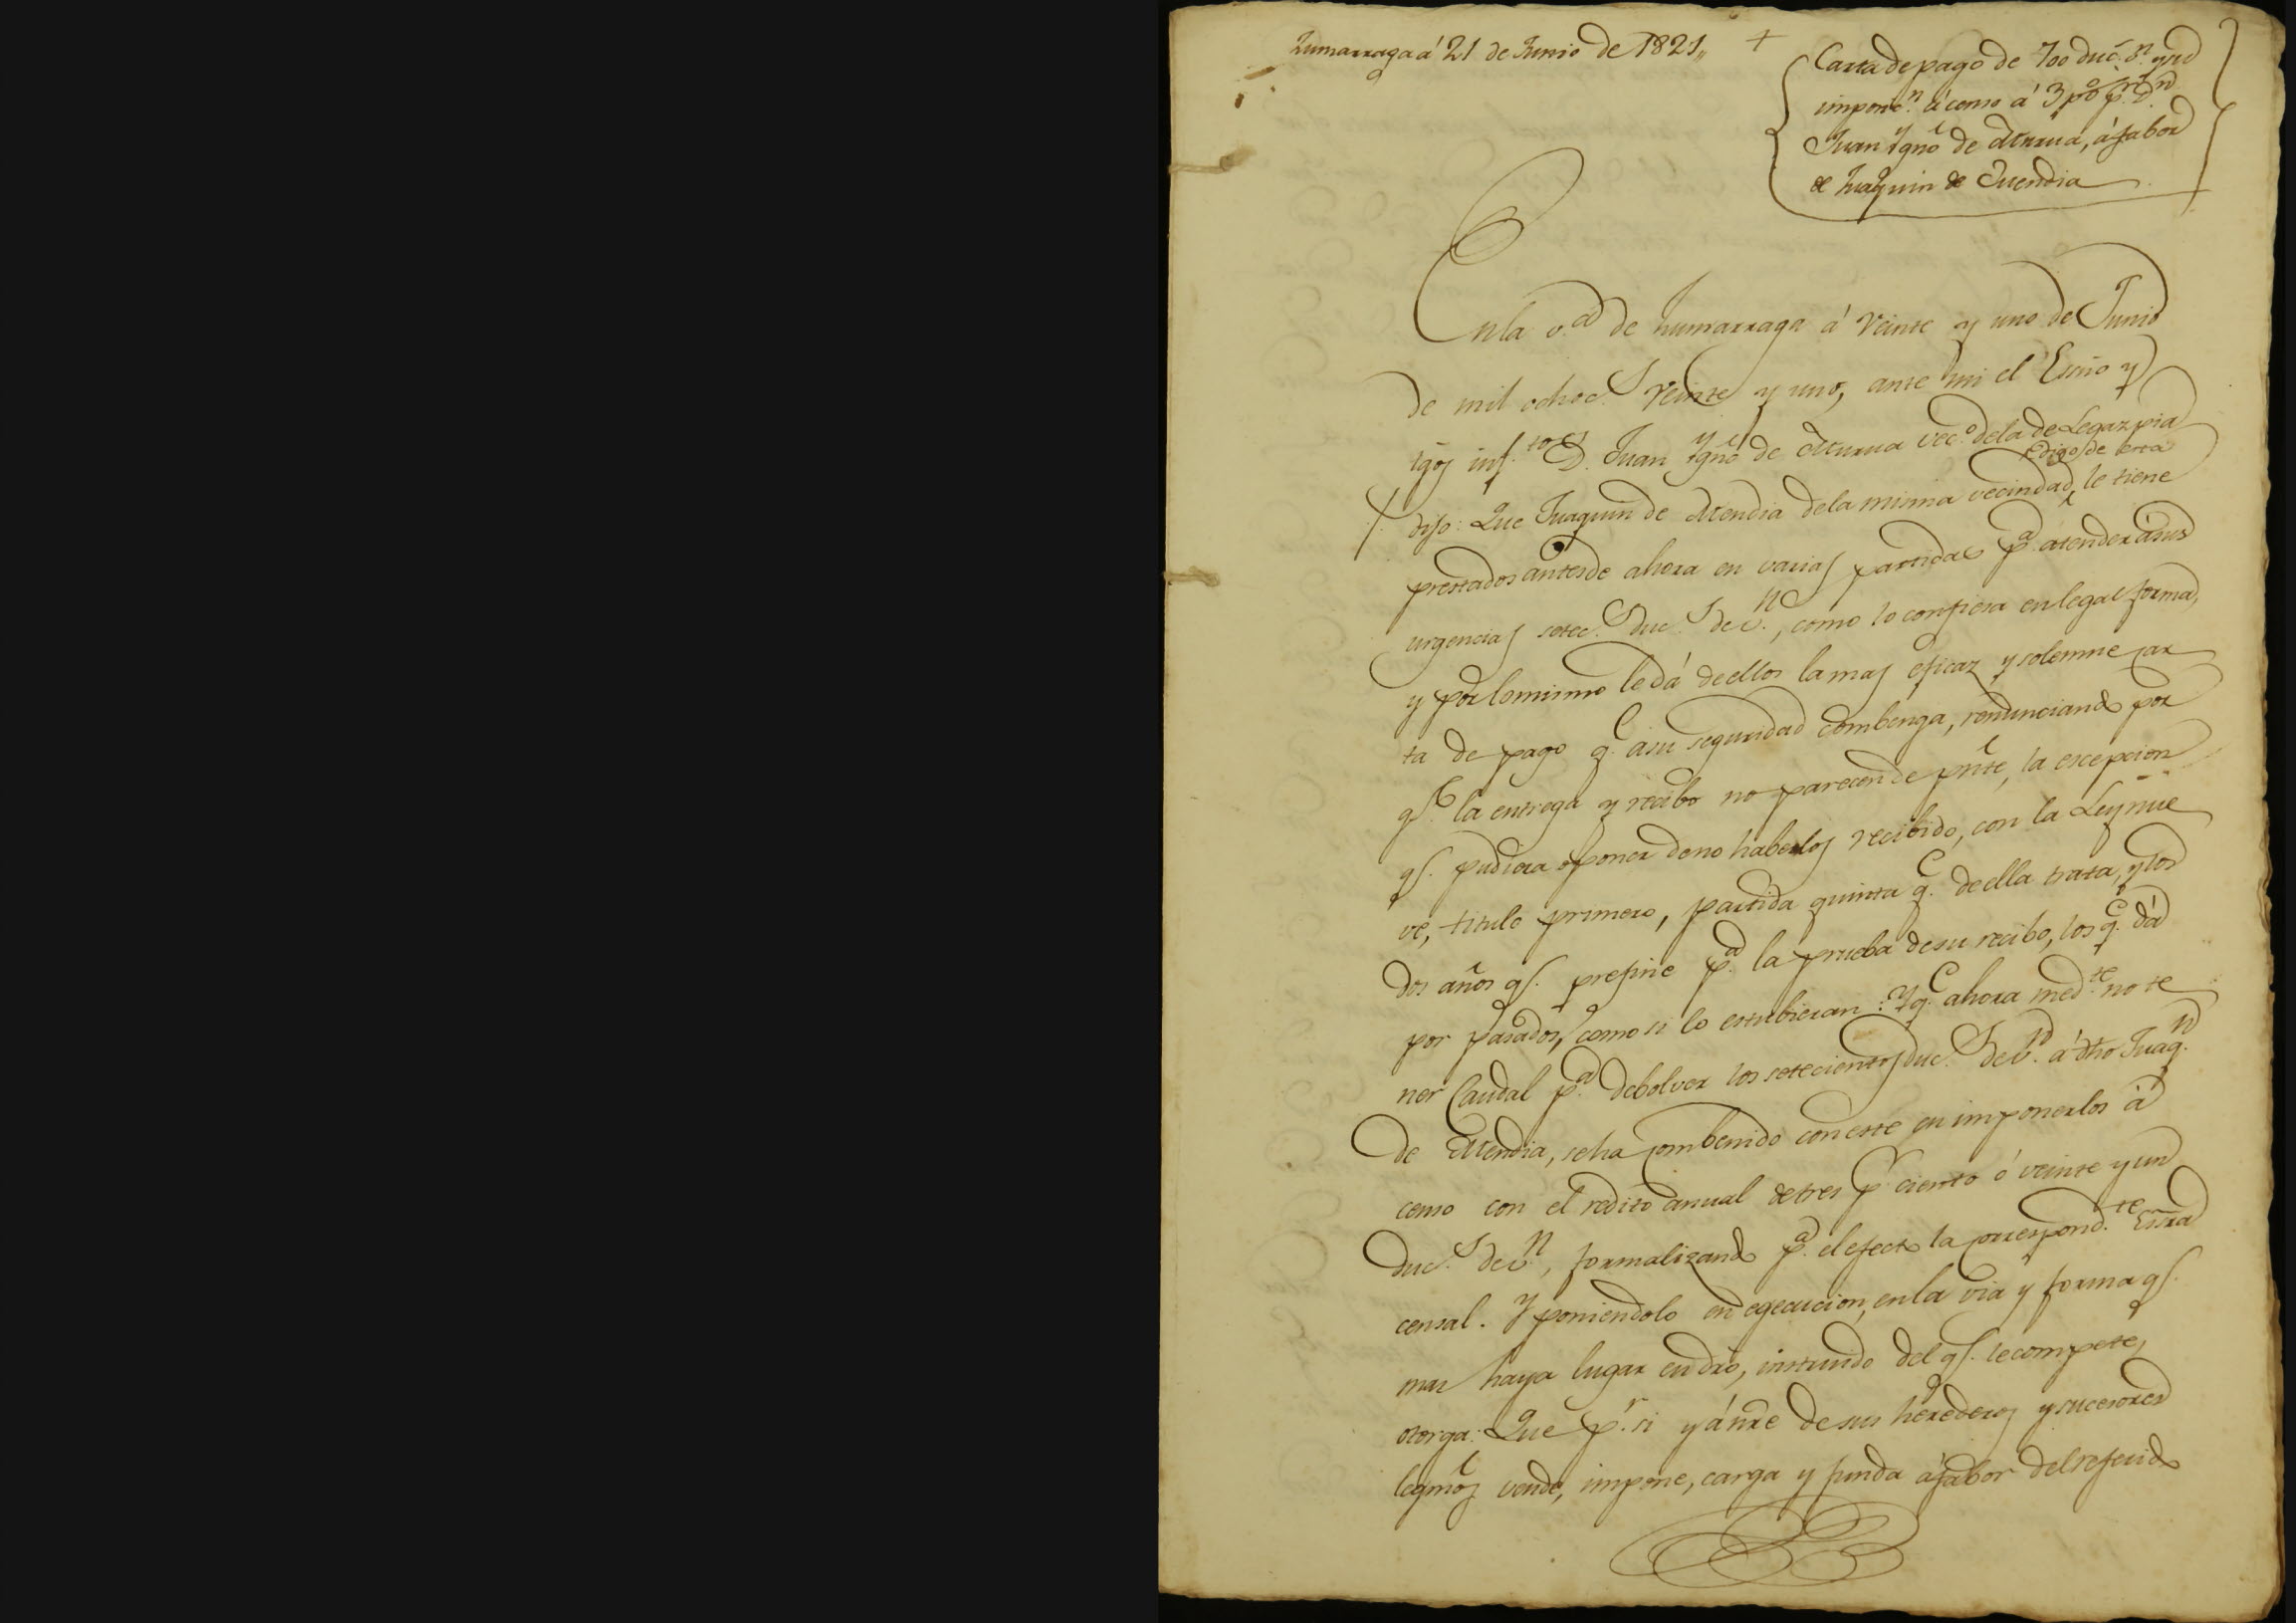 Zumarraga á 21 de Junio de 1821,,
+
Carta de pago de 700 duc.s v.n y su
impoic.n á censo á 3 p% p.r D.n
Juan Ygnõ de Aturua, á fabor
de Juaquin de
En la v.a de Zumarraga á veinte y uno de Junio
de mil ochoc.s veinte y uno, ante mi el Essño y
tgos inf.tos D. Juan Ygnõ de Aturua vec.o de la de Legazpia
dijo: Que Juaquin de Atendia de la misma vecindad, digo de esta le tiene
prestados antes de ahora en varias partidas p.a atender á sus
urgencias setec.s duc.s de v.n, como lo confiesa en legal forma,
y por lo mismo le dá de ellos la mas eficaz y solemne car
ta de pago q.e a su seguridad combenga, renunciando por
q.e la entrega y recibo no parecen de pñte, la escepcion
q.e pudiera oponer de no haberlos recibido, con la Ley nue
ve, titulo primero, partida quinta q.e de ella trata, y los
dos años q.e prefine p.a la prueba de su recibo, los q.e dá
por pasados, como si lo estubieran: Y q.e ahora med.te no te
ner Caudal p.a debolver los setecientos duc.s de v.n á dho Juaq.n
de Atendia, se ha combenido con este en imponerlos á
censo con el redito anual de tres p.r ciento ó veinte y un
duc.s de v.n, formalizando p.a el efecto la correspond.te Essra
censal. Y poniendolo en egecucion, en la via y forma q.e
mas haya lugar en dro, instruido del q.e le compete,
otorga: Que p.r si y á nre de sus herederos y sucesores
legmõs vende, impone, carga y funda á fabor del referido